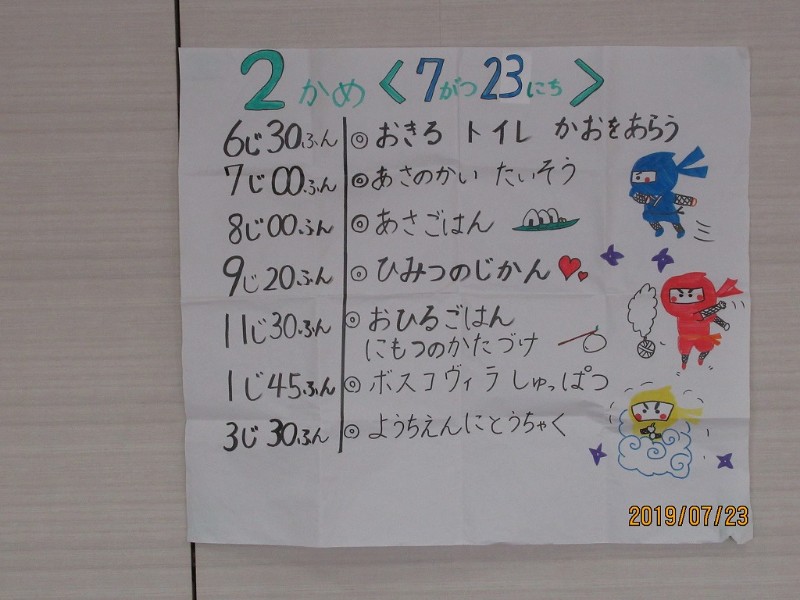 2かめ〈7がつ23にち〉
6じ30ふん ◎おきる トイレ かおをあらう
7じ00ふん ◎あさのかい たいそう
8じ00ふん ◎あさごはん
9じ20ふん ◎ひみつのじかん
11じ30ふん ◎おひるごはん
にもつのかたづけ
1じ45ふん ◎ボスコヴィラしゅっぱつ
3じ30ふん ◎ようちえんにとうちゃく
2019/07/23